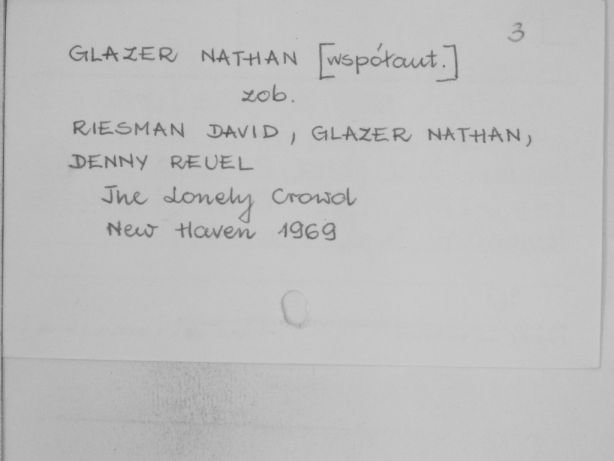 3
GLAZER NATHAN [współaut.]
zob.
RIESMAN DAVID, GLAZER NATHAN,
DENNY REUEL
The Lonely Crowd
New Haven 1969